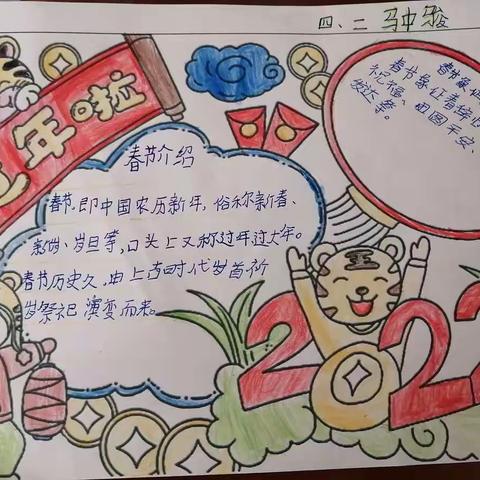 四、二 马中骏
过年啦
春节介绍
春节,即中国农历新年,俗称新春、
新岁、岁旦等,口头上又称过年过大年。
春节历史久,由上古时代岁首祈
岁祭祀演变而来。
春节
春节象征着辞旧
祝福、团圆平安、
发达等。
2022